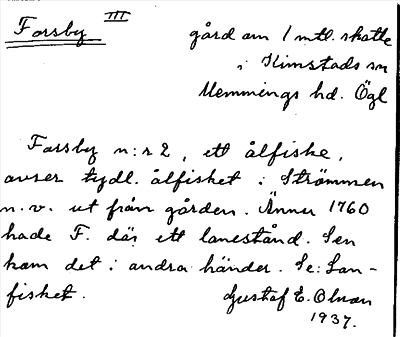 Forsby III
gård om 1 mtl. skatte
i Kimstads sn
Memmings hd. Ögl
Forsby n:r 2, ett ålfiske,
avser tydl. ålfisket i Strömmen
n.v. ut från gården. Ännu 1760
hade F. där ett lanestånd. Sen
kom det i andra händer. Se: Lan-
fisket.
Gustaf E. Olsson
1937.